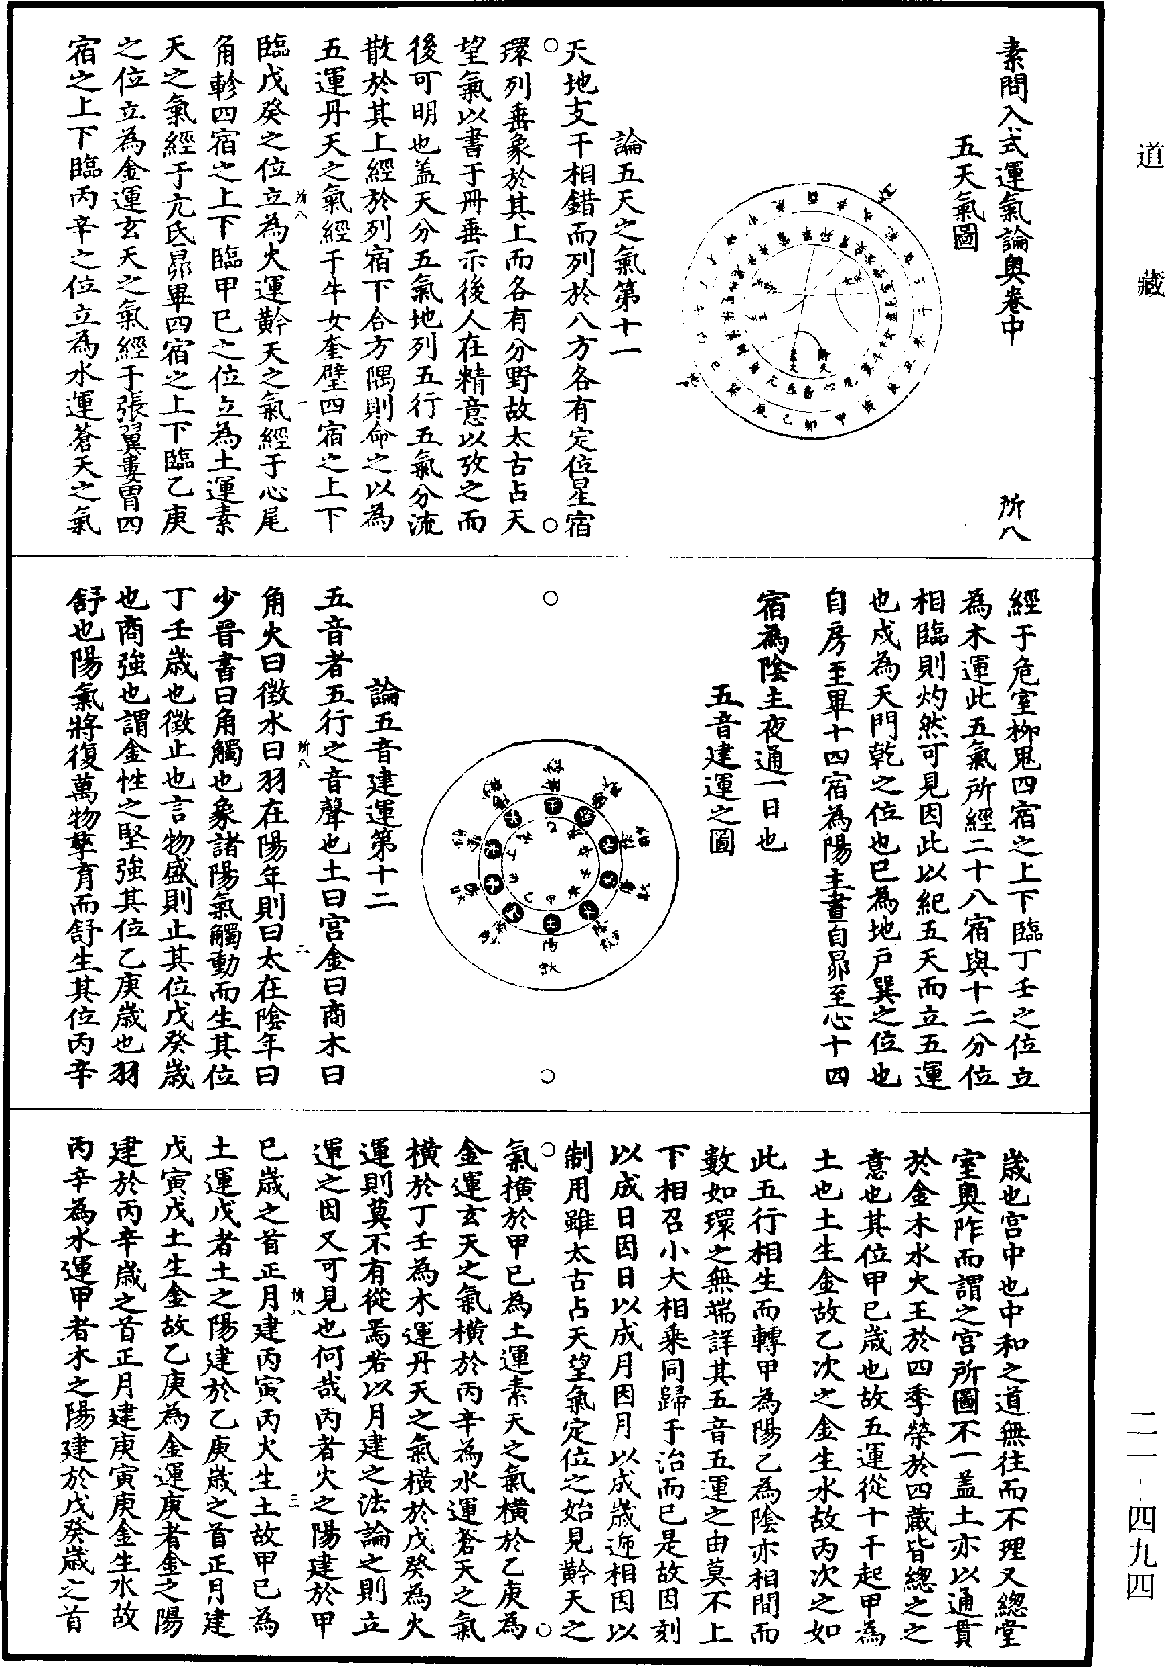 道藏
素問入式運氣論奧卷中
所八
五天氣圖
論五天之氣第十一
天地支干相錯而列於八方各有定位星宿
環列垂象於其上而各有分野故太古占天
望氣以書于冊垂示後人在精意以攷之而
後可明也盖天分五氣地列五行五氣分流
散於其上經於列宿下合方隅則命之以為
五運丹天之氣經于牛女奎壁四宿之上下
所八
一
臨戊癸之位立為火運黅天之氣經于心尾
角軫四宿之上下臨甲巳之位立為土運素
天之氣經于亢氐昴畢四宿之上下臨乙庚
之位立為金運玄天之氣經于張翼婁胃四
宿之上下臨丙辛之位立為水運蒼天之氣
經于危室柳鬼四宿之上下臨丁壬之位立
為木運此五氣所經二十八宿與十二分位
相臨則灼然可見因此以紀五天而立五運
也戍為天門乾之位也巳為地戶巽之位也
自房至畢十四宿為陽主晝自昴至心十四
宿為陰主夜通一日也
五音建運之圖
論五音建運第十二
五音者五行之音聲也土曰宮金曰商木曰
所八
二
角火曰徵水曰羽在陽年則曰太在陰年曰
少晉書曰角觸也象諸陽氣觸動而生其位
丁壬歲也徵止也言物盛則止其位戊癸歲
也商強也謂金性之堅強其位乙庚歲也羽
舒也陽氣將復萬物孳育而舒生其位丙辛
歲也宮中也中和之道無往而不理又總堂
室奧阼而謂之宮所圖不一盖土亦以通貫
於金木水火王於四季榮於四藏皆總之之
意也其位甲巳歲也故五運從十干起甲為
土也土生金故乙次之金生水故丙次之如
此五行相生而轉甲為陽乙為陰亦相間而
數如環之無端詳其五音五運之由莫不上
下相召小大相乘同歸于治而已是故因刻
以成日因日以成月因月以成歲遞相因以
制用雖太古占天望氣定位之始見黅天之
氣橫於甲巳為土運素天之氣橫於乙庚為
金運玄天之氣橫於丙辛為水運蒼天之氣
橫於丁壬為木運丹天之氣橫於戊癸為火
運則莫不有從焉若以月建之法論之則立
運之因又可見也何哉丙者火之陽建於甲
所八
三
巳歲之首正月建丙寅丙火生土故甲巳為
土運戊者土之陽建於乙庚歲之首正月建
戊寅戊土生金故乙庚為金運庚者金之陽
建於丙辛歲之首正月建庚寅庚金生水故
丙辛為水運甲者木之陽建於戊癸歲之首
二一·四九四